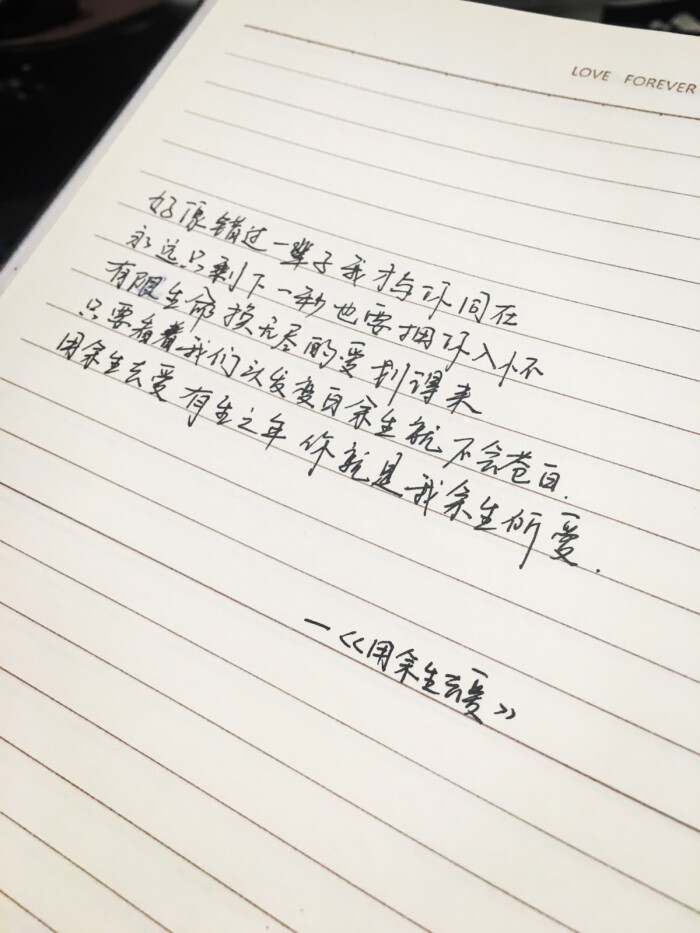 LOVE FOREVER
好像错过一辈子我才与你同在
永远只剩下一秒也要拥你入怀
有限生命换无尽的爱划得来
只要看着我们头发变白余生就不会苍白.
用余生去爱 有生之年 你就是我余生所爱.
—《用余生去爱》